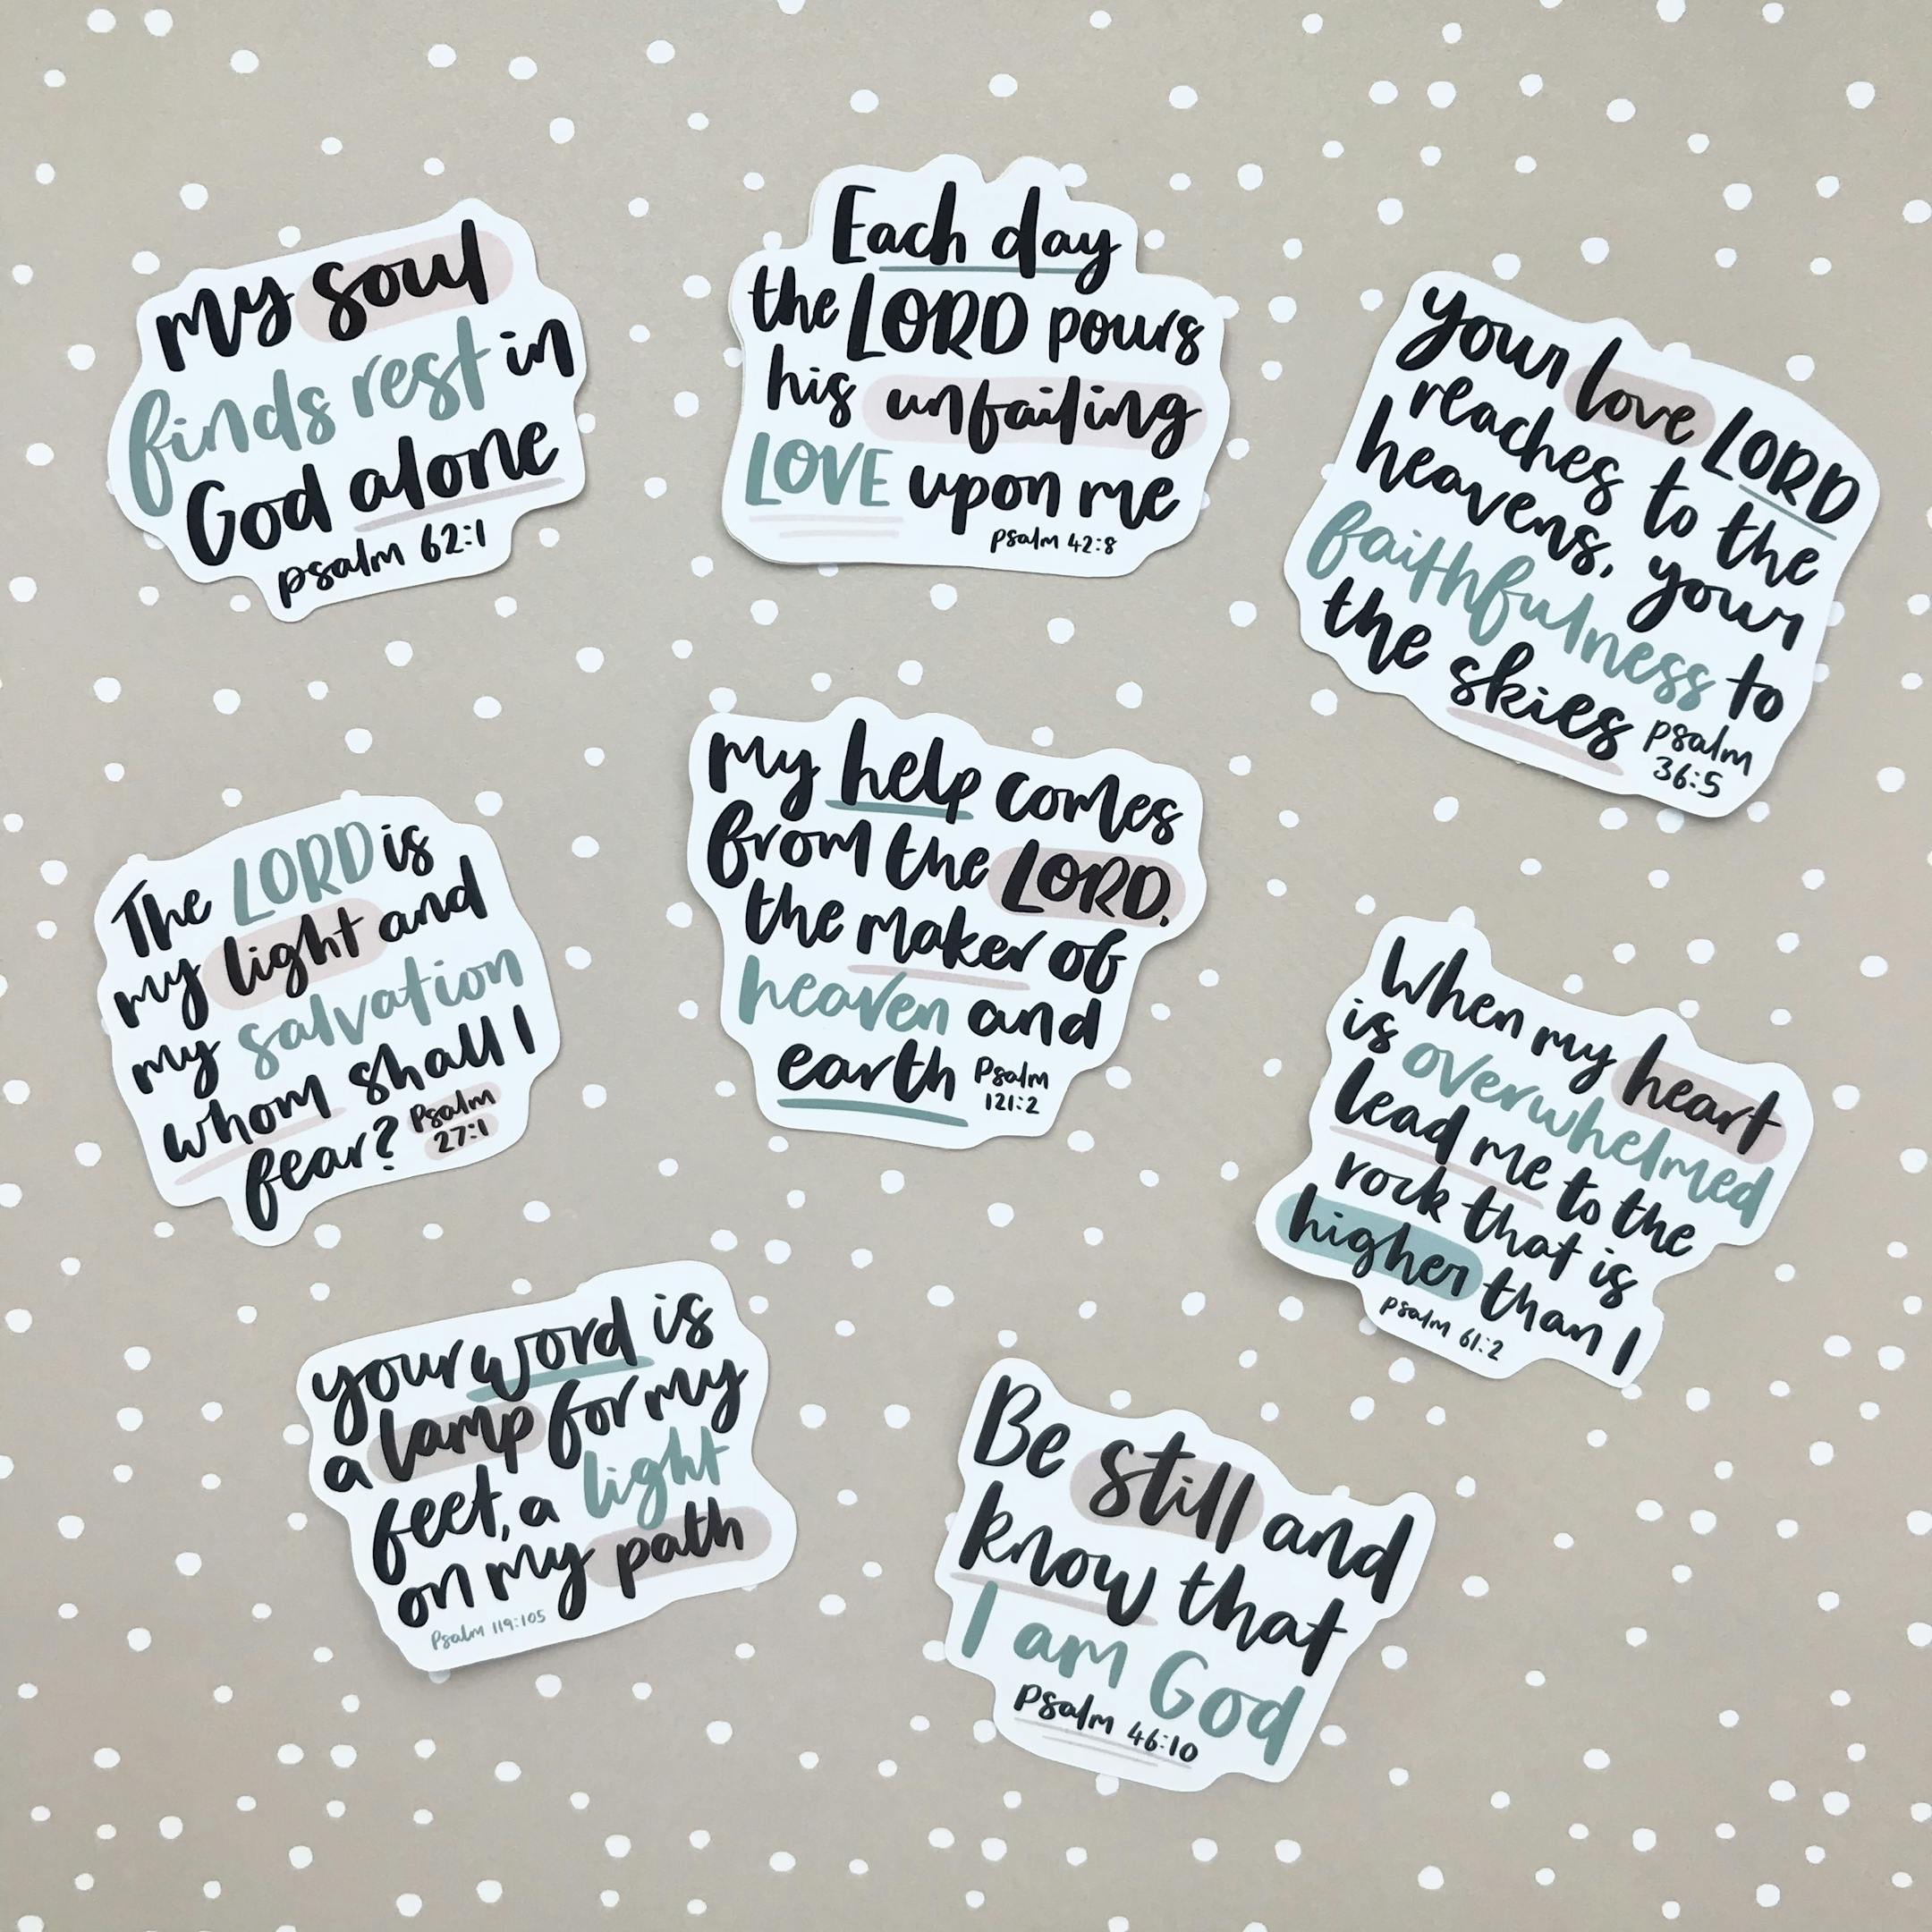 my soul
finds rest in
God alone
psalm 62:1
Each day
the LORD pours
his unfailing
LOVE upon me
psalm 42:8
your love LORD
reaches to the
heavens, your
faithfulness to
the skies
psalm
36:5
The LORD is
my light and
my salvation
whom shall I
fear?
Psalm
27:1
my help comes
from the LORD,
the maker of
heaven and
earth
Psalm
121:2
When my heart
is overwhelmed
lead me to the
rock that is
higher than I
psalm 61:2
your word is
a lamp for my
feet, a light
on my path
Psalm 119:105
Be still and
know that
I am God
psalm 46:10